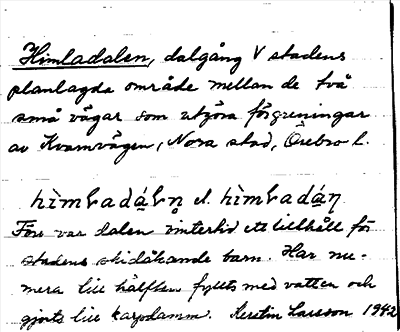 Himladalen, dalgång V stadens
planlagda område mellan de två
små vägar som utgöra förgreningar
av Kvarnvägen, Nora stad, Örebro l.
hìmladáln el. hìmladáṇ
Förr var dalen vintertid ett tillhåll för
stadens skidåkande barn. Har nu-
mera till hälften fyllts med vatten och
gjorts till karpdamm. Kerstin Larsson 1942